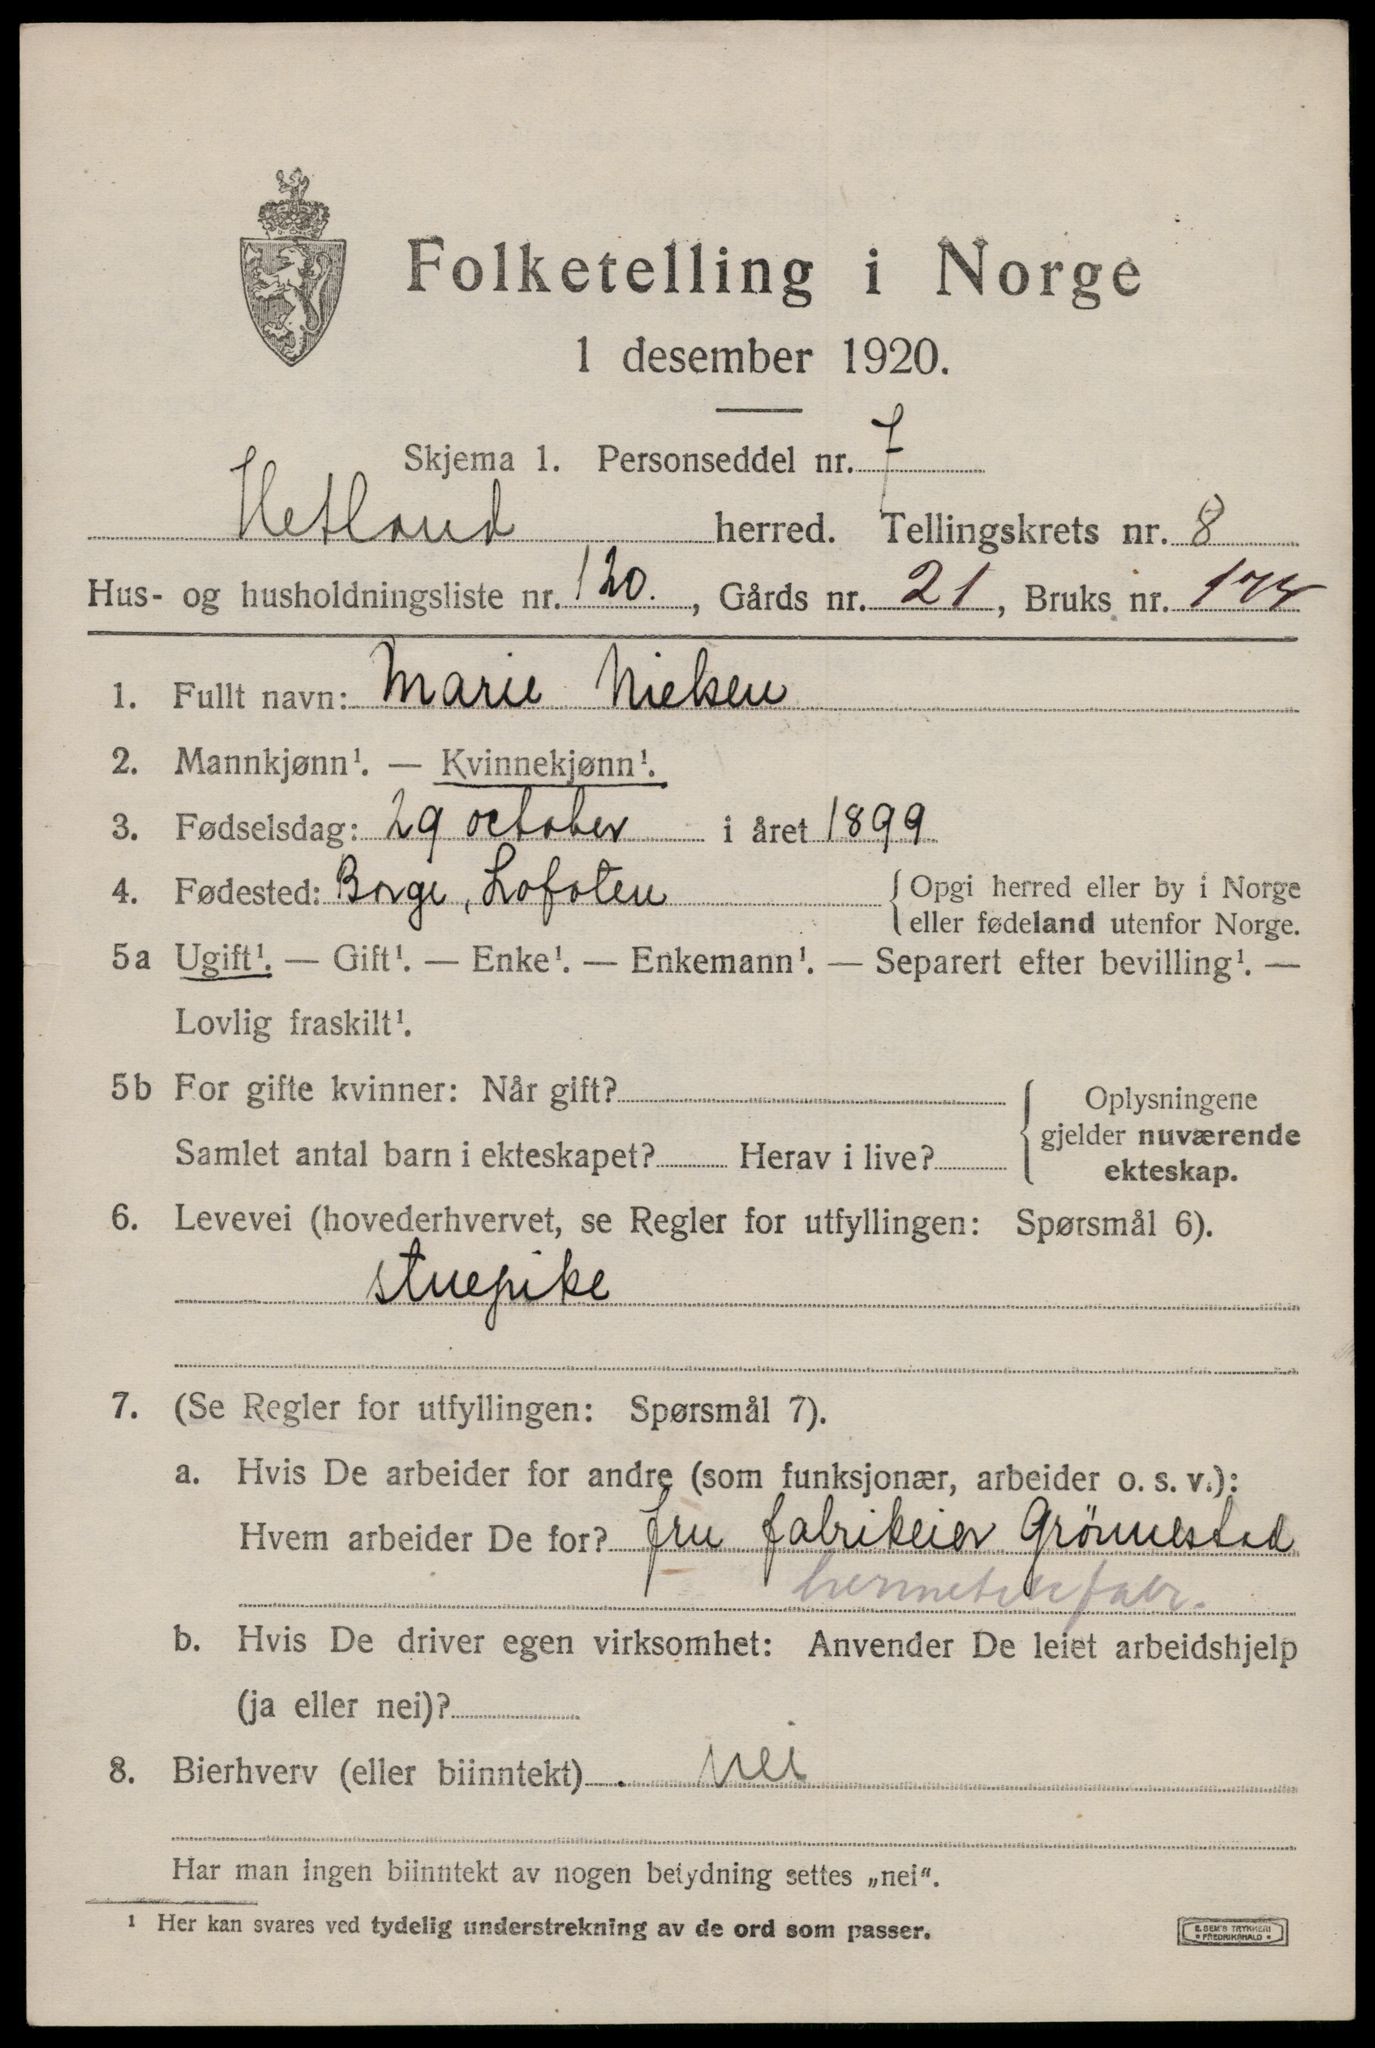 Folketelling i Norge
1 desember 1920.
Skjema 1. Personseddel nr. 7
Hetland herred. Tellingskrets nr. 8
Hus- og husholdningsliste nr. 120. , Gårds nr. 21 , Bruks nr.
1. Fullt navn: Marie Nielsen
2. Mannkjønn¹. — Kvinnekjønn¹.
3. Fødselsdag: 29 october i året 1899
4. Fødested: Borge, Lofoten { Opgi herred eller by i Norge
eller fødeland utenfor Norge.
5a Ugift¹. — Gift¹. — Enke¹. — Enkemann¹. — Separert efter bevilling¹. —
Lovlig fraskilt¹.
5b For gifte kvinner: Når gift? { Oplysningene
gjelder nuværende
Samlet antal barn i ekteskapet? Herav i live? ekteskap.
6. Levevei (hovederhvervet, se Regler for utfyllingen: Spørsmål 6).
stuepike
7. (Se Regler for utfyllingen: Spørsmål 7).
a. Hvis De arbeider for andre (som funksjonær, arbeider o. s. v.):
Hvem arbeider De for? fru fabrikeier Grönnestad
hermetikkfabr.
b. Hvis De driver egen virksomhet: Anvender De leiet arbeidshjelp
(ja eller nei)?
8. Bierhverv (eller biinntekt) . nei
Har man ingen biinntekt av nogen betydning settes „nei“.
¹ Her kan svares ved tydelig understrekning av de ord som passer.
E. SEM'S TRYKKERI
• FREDRIKSHALD •